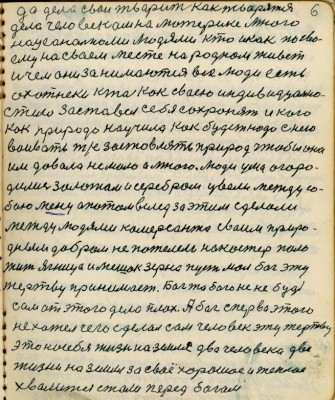 6
да дела свои тварит как тварятя
дела человеками на мотерике много
науеаномоми людями кто и как по сво
ему на сваем месте на родном живет
и чем они занимаются все люди есть
охотнеки кто как сваею индивидуално
стию заставил себя сохронят и кого
как природа научила как будет надо с нею
воиват т/е заставлять природу чтобы она
им давала не мало а много. Люди ума огоро
дили золотам и серебром увели между со
бою мену а потом вслед за этим сделали
между людями комерсанта сваим приро
дным добром не пожелел на костер поло
жит ягница и мешок зерна пуст мол бог эту
жертву принимает. Бог то бог не не буд
сам от этого дела плох. А бог сперва этого
не хотел чего сделал сам человек эту жертву
это на себя жизн на земле два человека две
жизни на земли за своё хорошое и теплое
хвалится стали перед богам